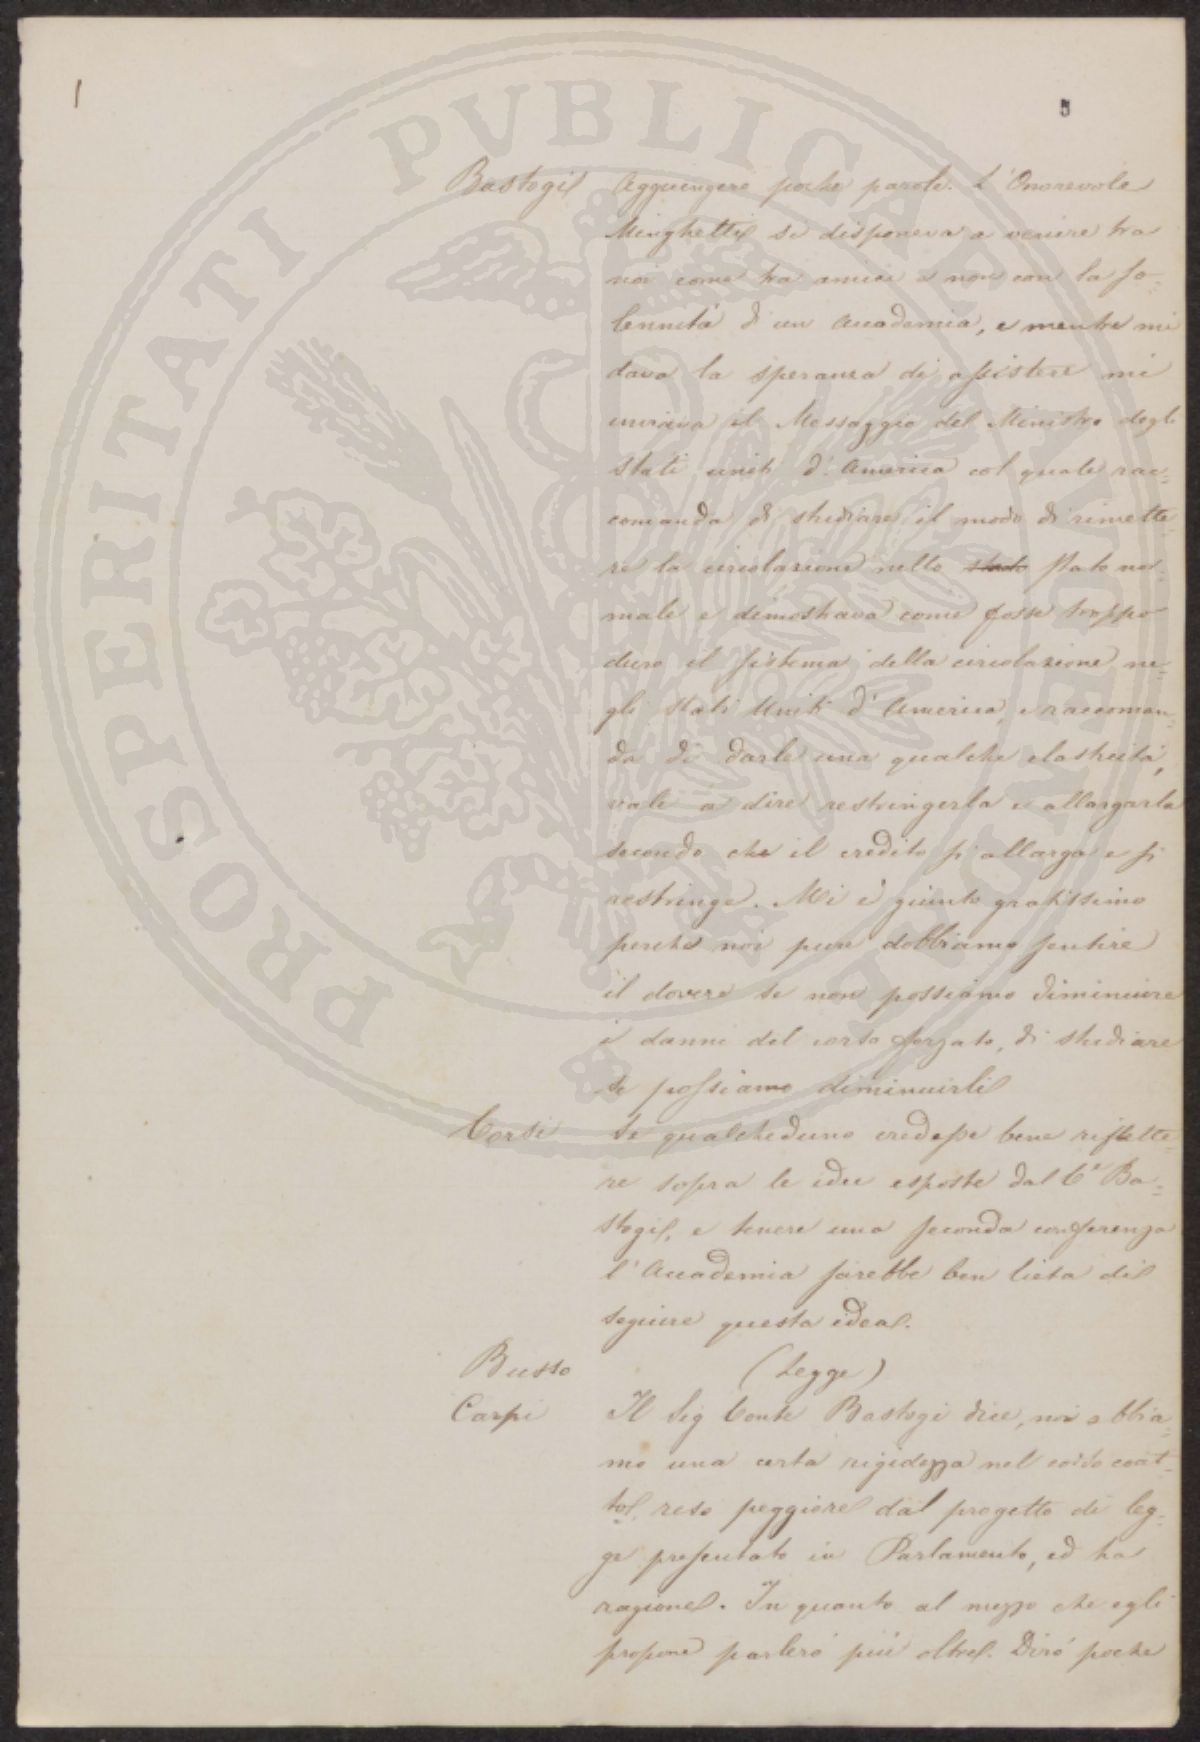 1
5
PROSPERITATI PUBLICAE AUGENDAE
Bastogi Aggiungerò poche parole. L'Onorevole
Minghetti si disponeva a venire tra
noi come tra amici e non con la so=
lennità d'un Accademia, e mentre mi
dava la speranza di assistere mi
inviava il Messaggio del Ministro degli
Stati uniti d'America col quale rac=
comanda di studiare il modo di rimette=
re la circolazione nello stato Stato nor=
male e dimostrava come fosse troppo
duro il sistema della circolazione ne=
gli Stati Uniti d'America, e raccoman=
da di darle una qualche elasticità,
vale a dire restringerla e allargarla
secondo che il credito si allarga e si
restringe. Mi è giunto gratissimo
perchè noi pure dobbiamo sentire
il dovere se non possiamo diminuire
i danni del corso forzato, di studiare
se possiamo diminuirli
Corsi Se qualcheduno credesse bene riflette=
re sopra le idee esposte dal Ce Ba=
stogi, e tenere una seconda conferenza
l'Accademia sarebbe ben lieta di
seguire questa idea.
Busso (Legge)
Carpi Il Sig Conte Bastogi dice, noi abbia=
mo una certa rigidezza nel corso coat=
to, reso peggiore dal progetto di leg=
ge presentato in Parlamento, ed ha
ragione. In quanto al mezzo che egli
propone parlerò più oltre. Dirò poche